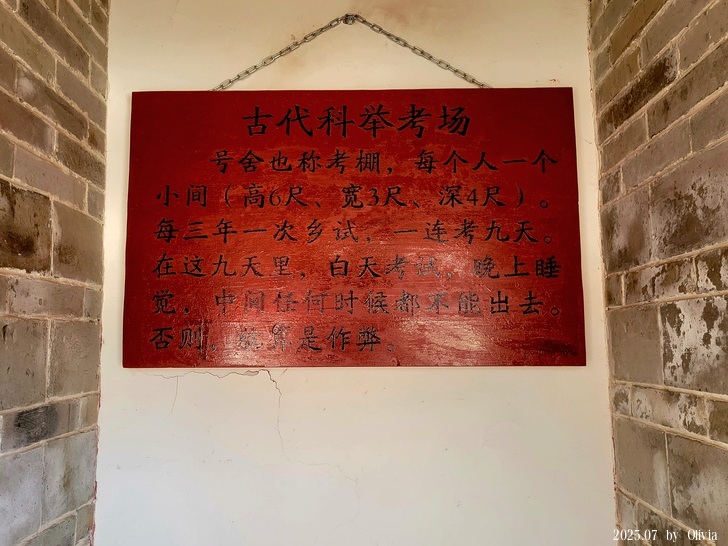 古代科举考场
号舍也称考棚，每个人一个
小间（高6尺、宽3尺、深4尺）。
每三年一次乡试，一连考九天。
在这九天里，白天考试，晚上睡
觉，中间任何时候都不能出去。
否则，就算是作弊。
2025.07 by Olivia